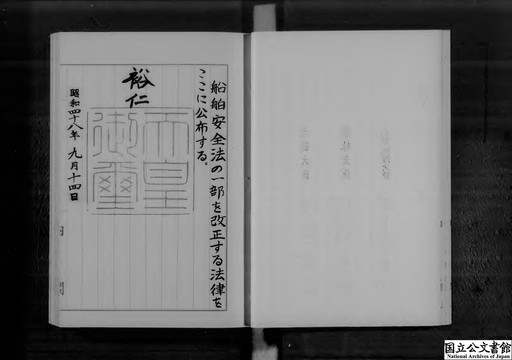 船舶安全法の一部を改正する法律を
ここに公布する。
裕仁
天皇
御璽
昭和四十八年九月十四日
国立公文書館
National Archives of Japan